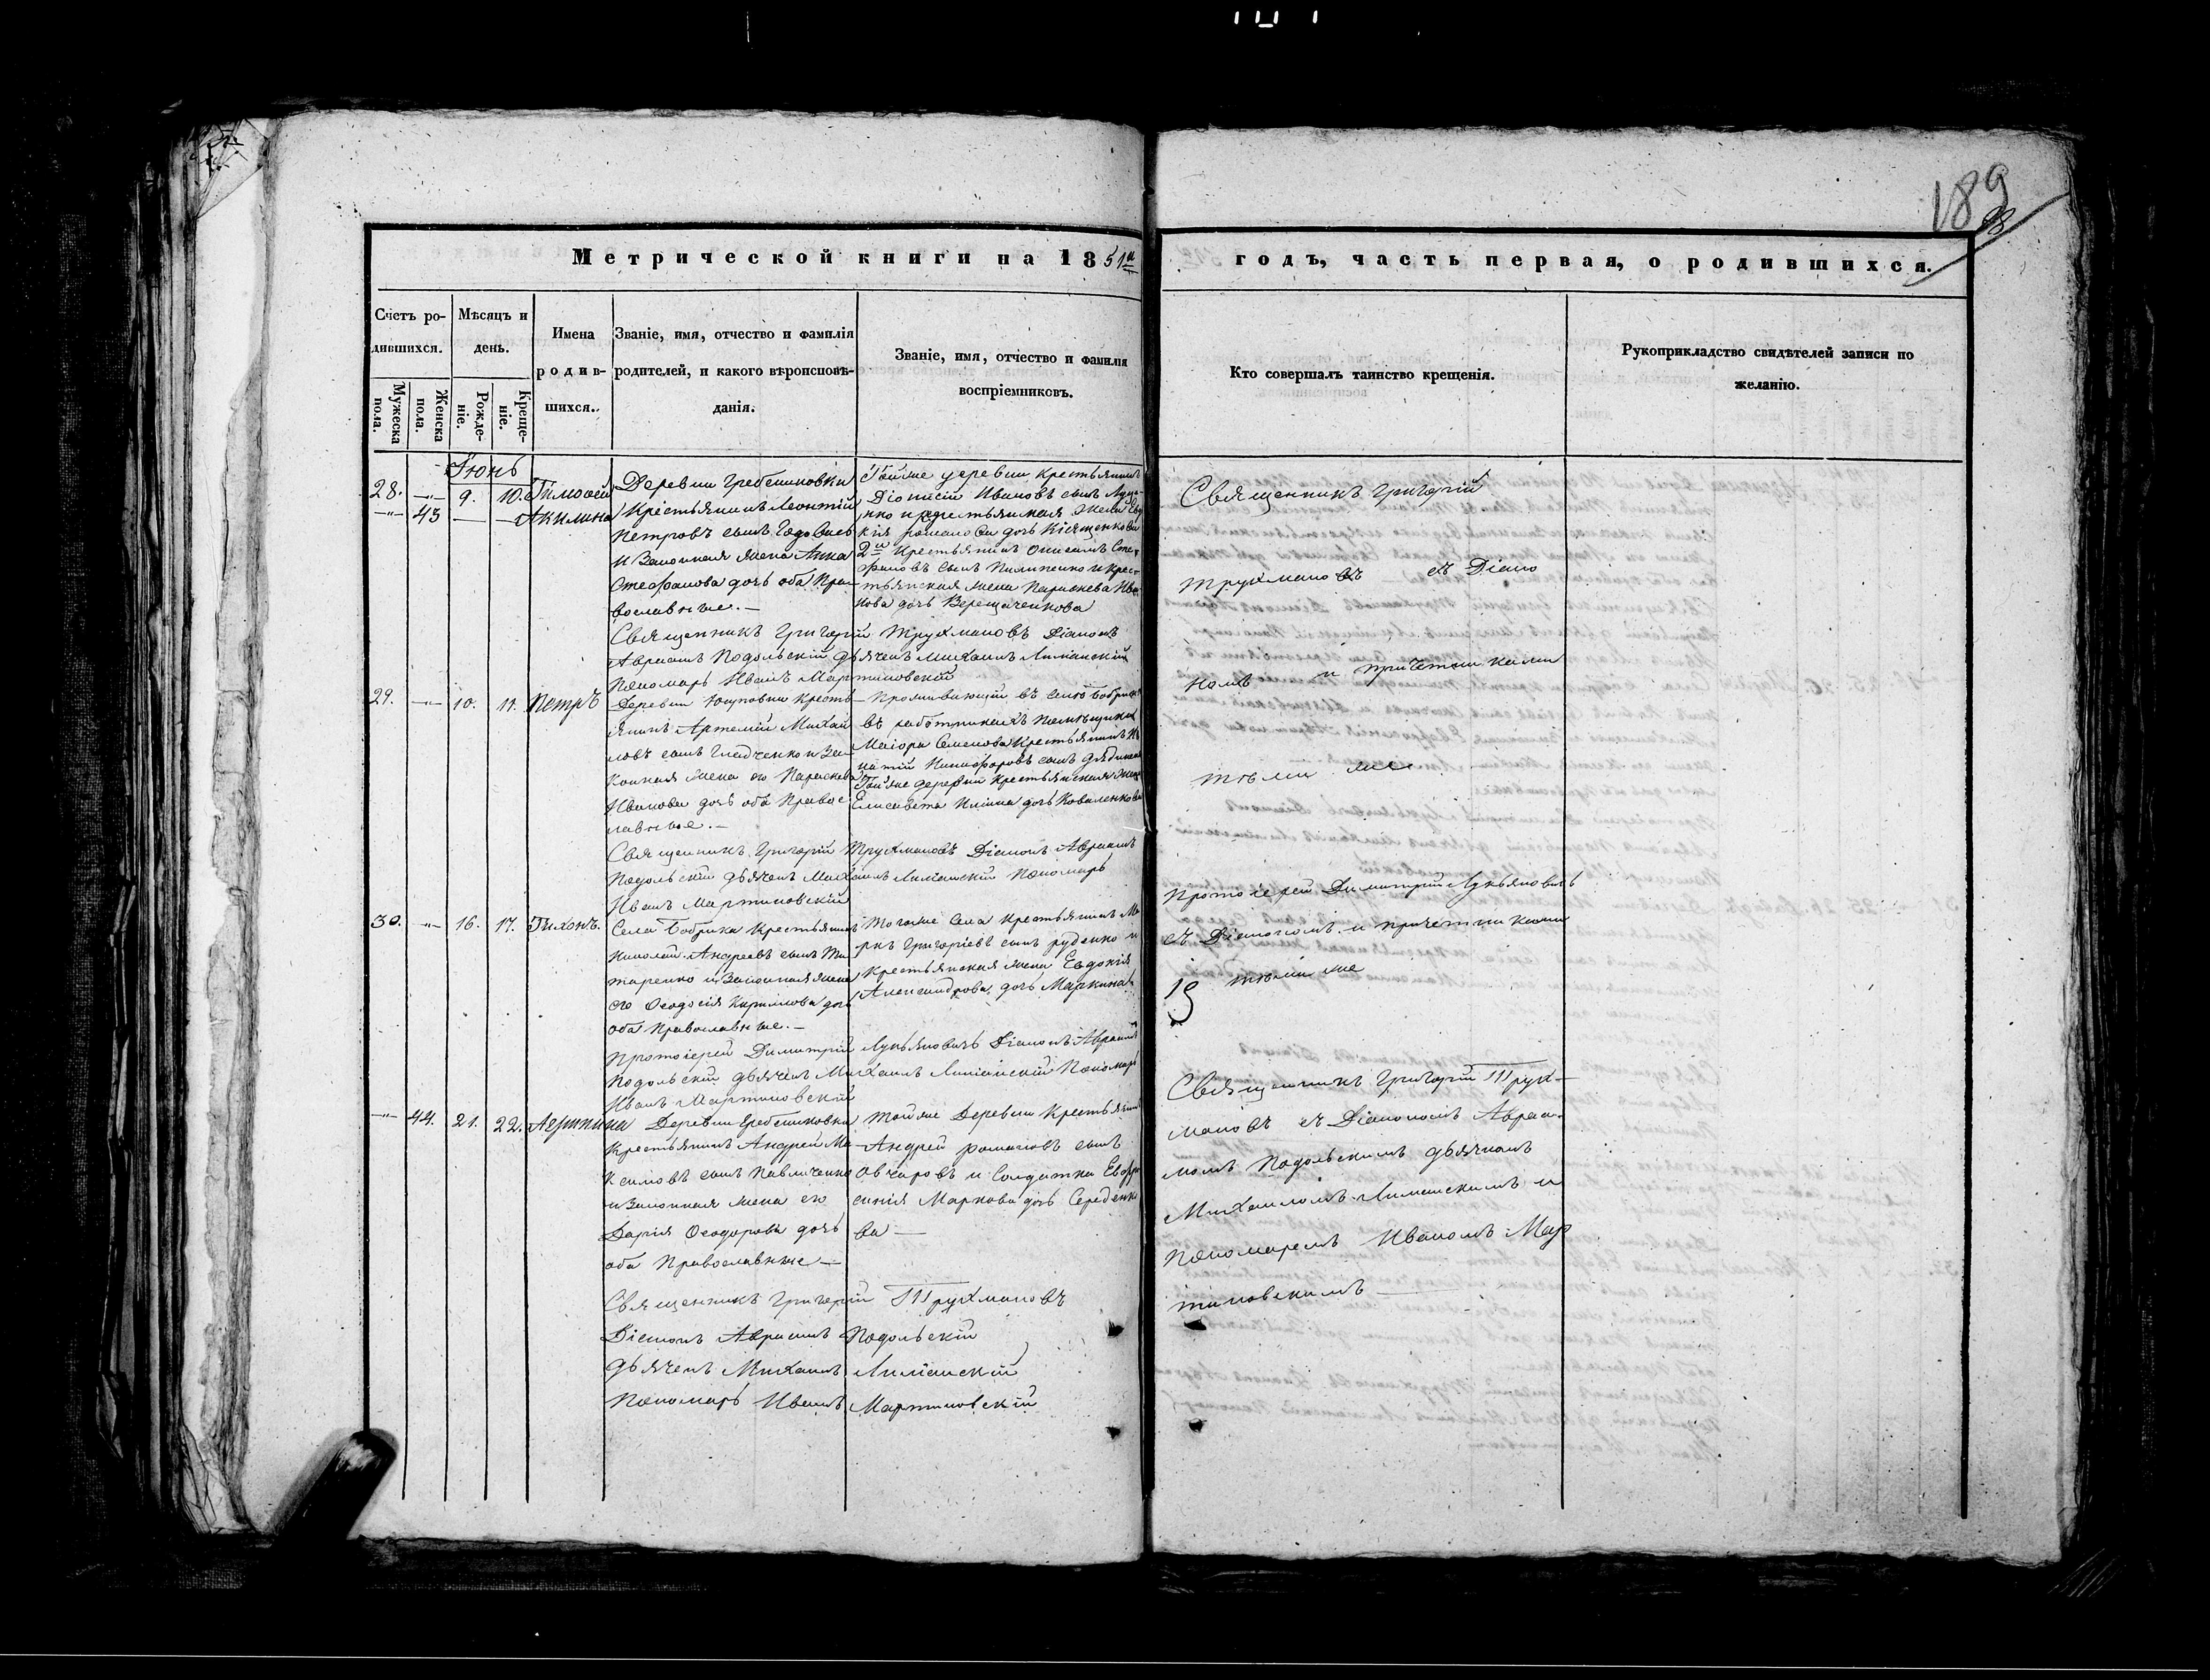 189
98
Метрической книги на 1851й
годъ, часть первая, о родившихся.
Счетъ ро-
дившихся.
Мужеска
пола.
Женска
пола.
Мѣсяцъ и
день.
Рожде-
ніе.
Креще-
ніе.
Имена
родив-
шихся.
Званіе, имя, отчество и фамилія
родителей, и какого вѣроисповѣ-
данія.
Званіе, имя, отчество и фамилія
воспріемниковъ.
Кто совершалъ таинство крещенія.
Рукоприкладство свидѣтелей записи по
желанію.
Іюнь
28. —"— 9. 10. Тимофей
—"— 43 — — Акилина
Деревни Гребениковки
Крестьянинъ Леонтій
Петровъ сынъ
и Законная жена Анна
Стефанова дочь оба Пра-
вославные.—
Тойже деревни крестьянинъ
Діонисій Ивановъ сынъ
крестьянская жена
дочь
2й Крестьянинъ
сынъ Пилипенко и крес-
тьянская жена Параскева Ива
нова дочь Верещаченкова
Священникъ Григорій Трухмановъ Діаконъ
Авраамъ Подольскій дьячекъ Михаилъ Лиманскій
Пономарь Иванъ Мартиновскій
Священникъ Григорій
Трухмановъ съ Діако
номъ и причетниками
тѣми же
29. —"— 10. 11. Петръ
Деревни Юнаковки Кресть-
янинъ Артемій Михай
ловъ сынъ Гладченко и За-
конная жена его Параскева
Иванова дочь оба Правос
лавные.—
Проживающій въ селѣ Бобрикѣ
въ работникахъ помѣщика
Маіора Семенова Крестьянинъ
Никифоровъ сынъ
Тойже деревни Крестьянская жена
Елисавета Ильина дочь Коваленкова
Священникъ Григорій Трухмановъ Діаконъ Авраамъ
Подольскій дьячекъ Михаилъ Лиманскій Пономарь
Иванъ Мартиновскій
30. —"— 16. 17. Тихонъ.
Села Бобрика Крестьянинъ
Николай Андреевъ сынъ Та
таренко и Законная жена
его Феодосія Кирилова дочь
оба Православные.—
Тогоже Села Крестьянинъ Ма
ркъ Григоріевъ сынъ Руденко и
Крестьянская жена Евдокія
Александрова дочь Маркина
Протоіерей Димитрій Лукьяновичъ Діаконъ Авраамъ
Подольскій дьячекъ Михаилъ Лиманскій Пономарь
Иванъ Мартиновскій
Протоіерей Димитрій Лукьяновичъ
съ Діакономъ и причетниками
тѣми же
19
—"— 44. 21. 22. Агрипина
Деревни Гребениковки
Крестьянинъ Андрей Ма
ксимовъ сынъ Павличенко
и Законная жена его
Дарія Феодорова дочь
оба Православные—
Тойже Деревни Крестьянинъ
Андрей Романовъ сынъ
Овчаровъ и Солдатка Евфро
синія Маркова дочь Середенко
ва—
Священникъ Григорій Трухмановъ
Діаконъ Авраамъ Подольскій
дьячекъ Михаилъ Лиманскій
Пономарь Иванъ Мартиновскій
Священникъ Григорій Трух-
мановъ съ Діакономъ Авраа-
момъ Подольскимъ дьячкомъ
Михаиломъ Лиманскимъ и
Пономаремъ Иваномъ Мар
тиновскимъ—